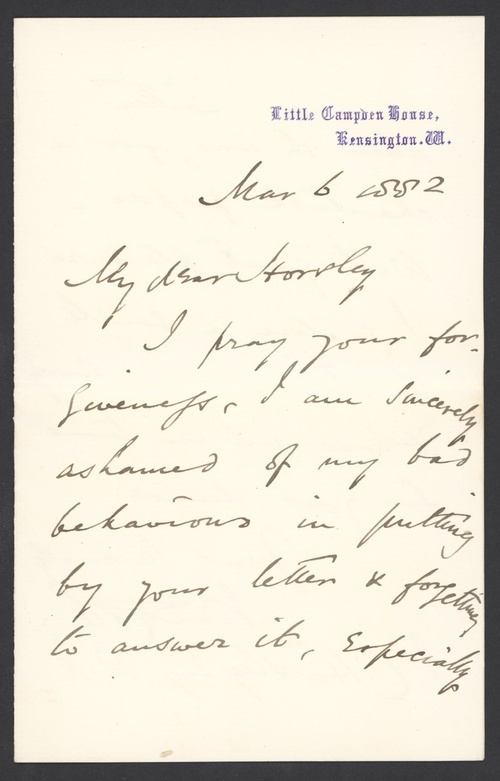 Little Campden House,
Kensington. W.
Mar 6 1882
My dear Horsley
I pray your for-
giveness, I am sincerely
ashamed of my bad
behaviour in putting
by your letter & forgetting
to answer it, especially